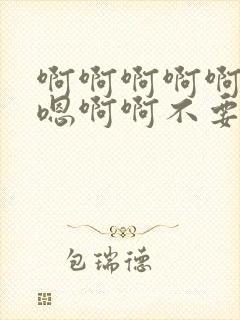 啊啊啊啊啊
嗯啊啊不要
包瑞德